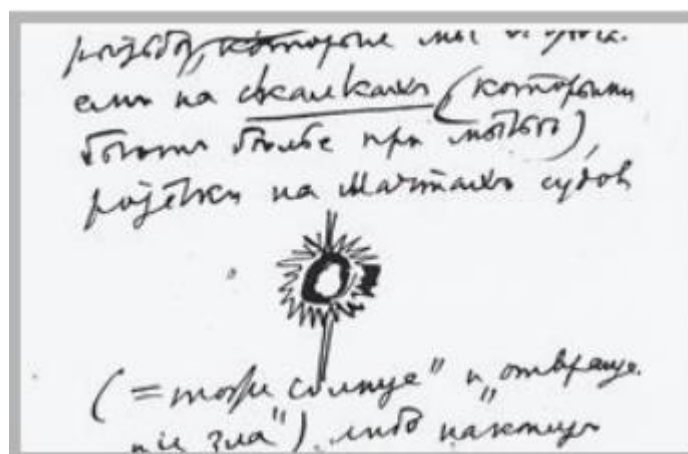 резьбы, которые мы
ем на скалкахъ (которыми
бьютъ бѣлье при мытьѣ),
розетки на мачтахъ судов
(= тоже солнце" и „отвраще-
ніе зла"), либо наконецъ